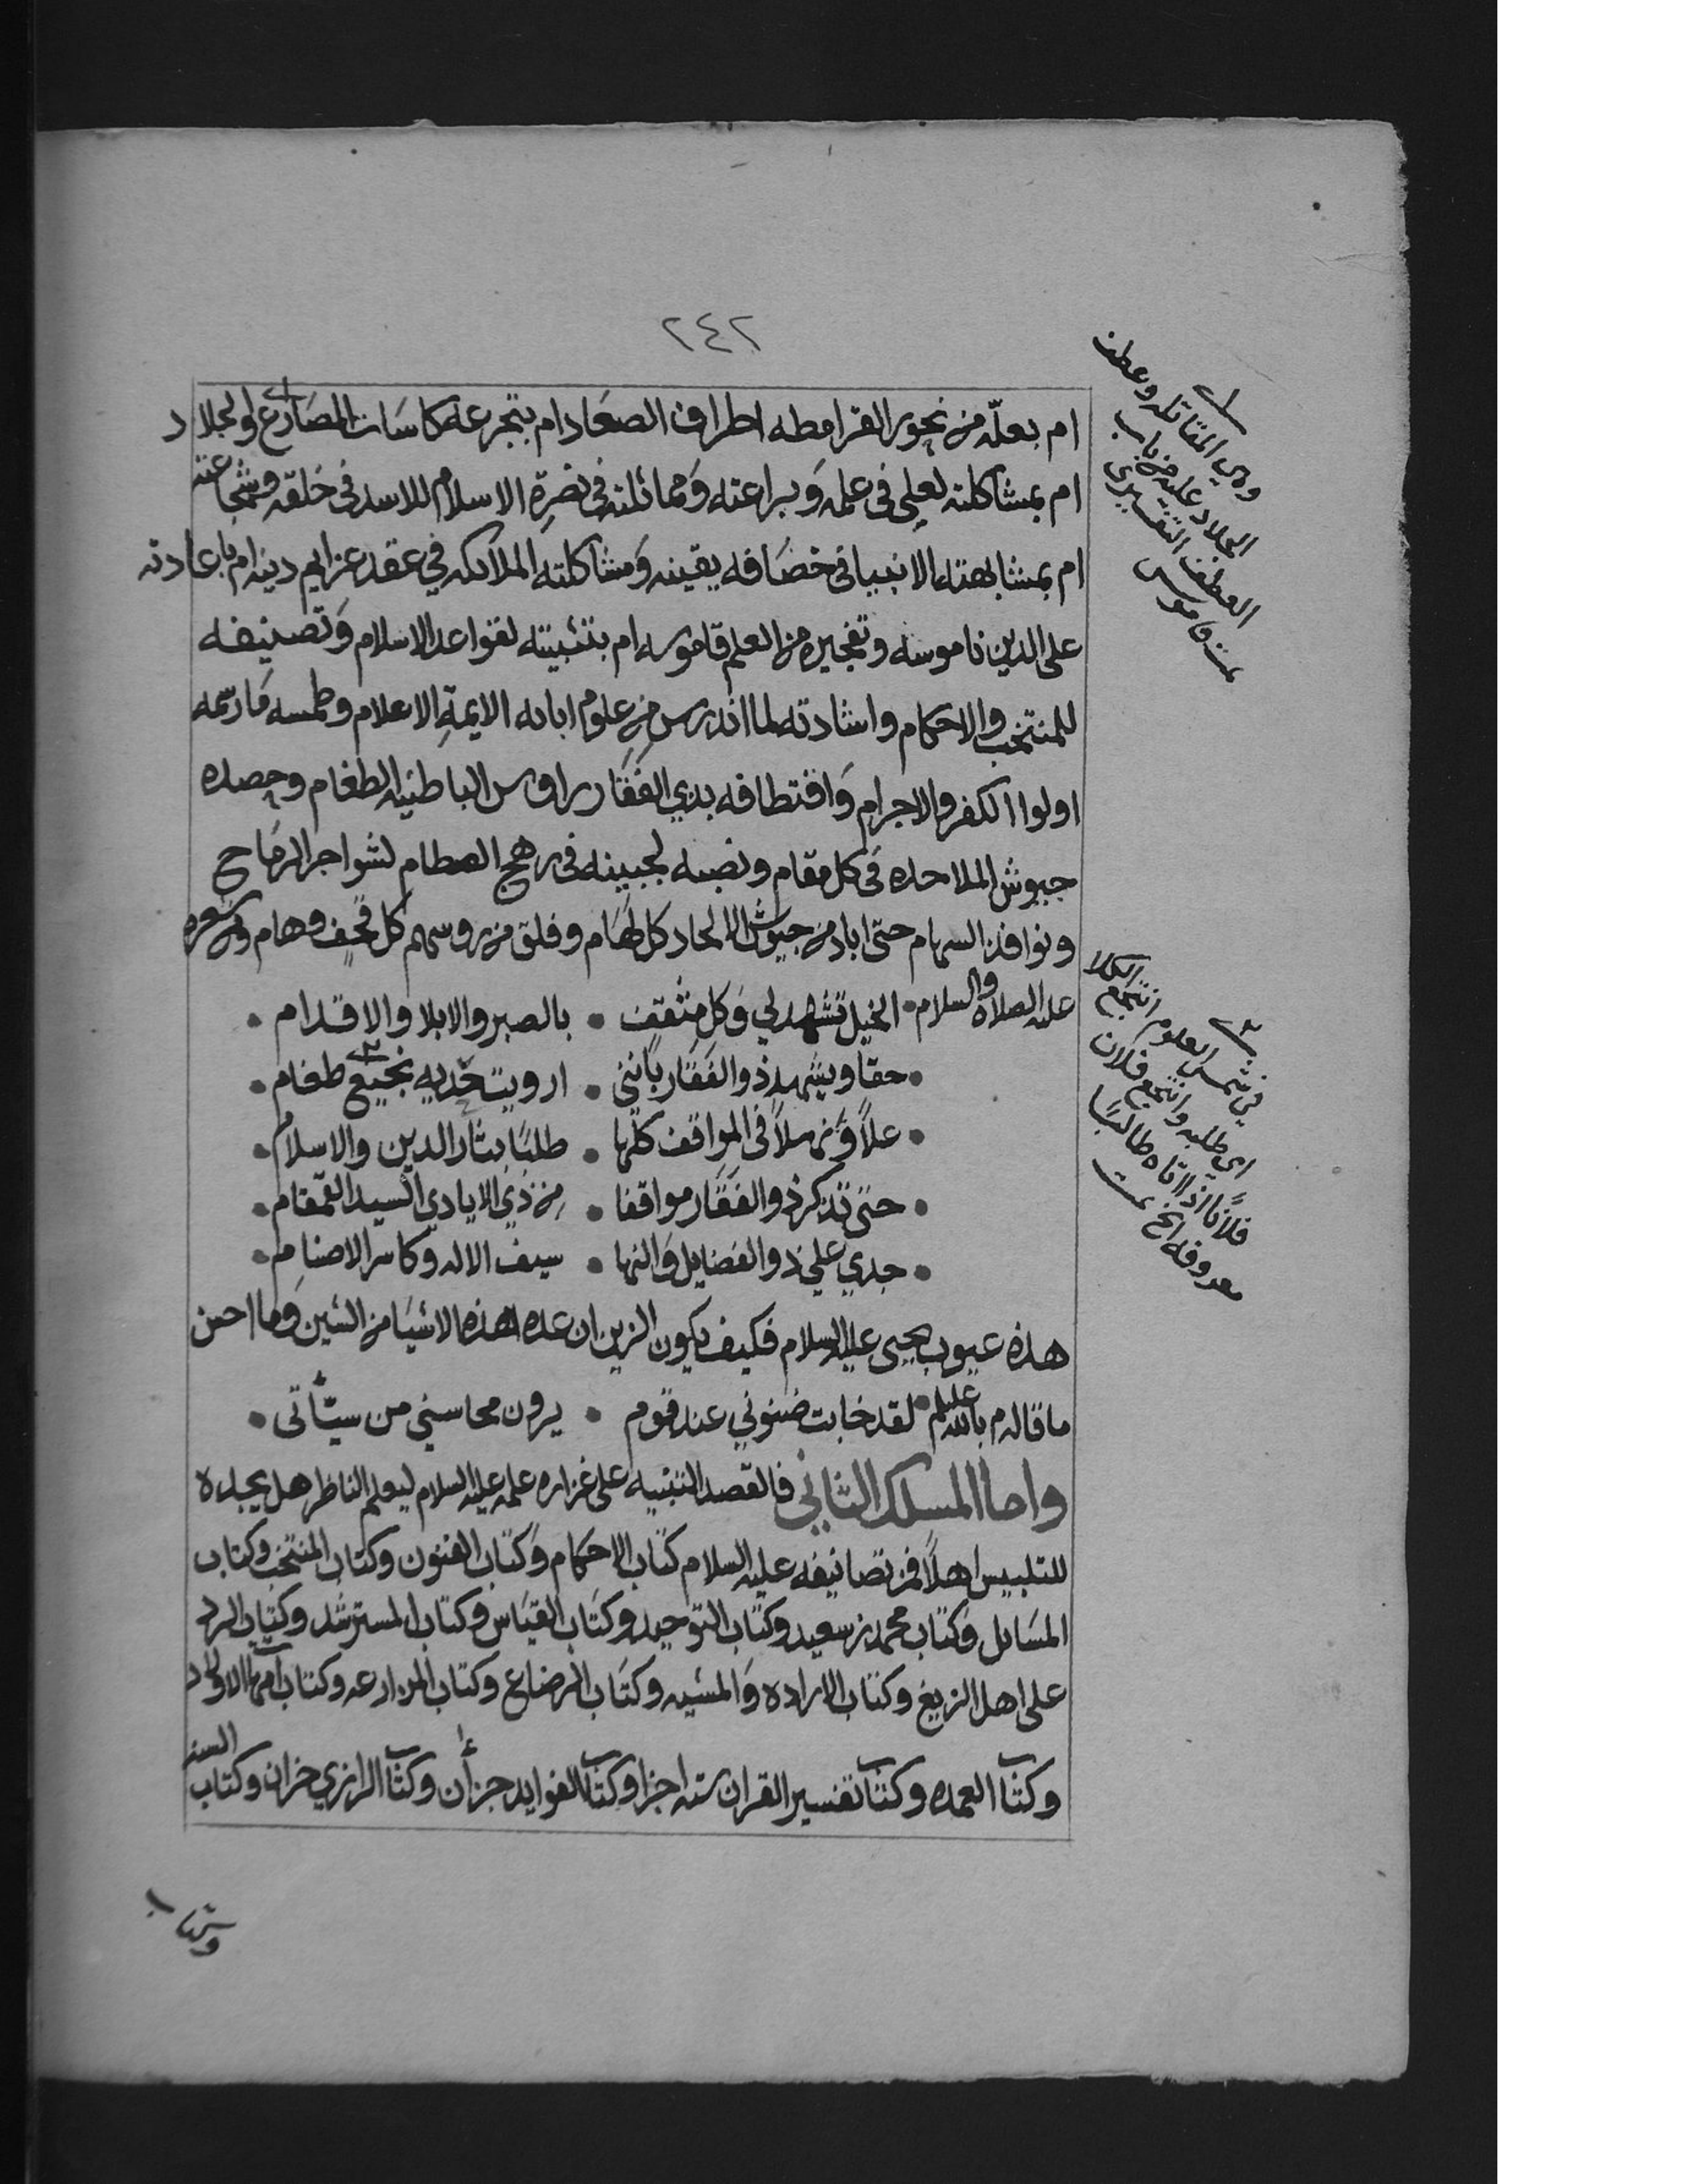 ٢٤٢
ام بعلّه من نحور القرامطه اطراف الصعاد ام بتجرعه كاسات المصارع والجلاد
ام بمشاكلته لعلي في علمه وبراعته ومماثلته في نصرة الاسلام للاسد في خلقه وشجاعته
ام بمشابهته الانبيا في خصافه يقينه ومشاكلته الملائكه في عقد عزايم دينه ام باعادته
على الدين ناموسه وتفجيره من العلم قاموسه ام بتثبيته لقواعد الاسلام وتصنيفه
للمنتخب والاحكام واشادته لما اندرس من علوم ابائه الايمة الاعلام وطمسه ما رسمه
اولوا الكفر والاجرام واقتطافه بذي الفقار رؤوس الباطنيه الطغام وحصده
جيوش الملاحده في كل مقام ونصبه لجبينه في رهج الصطام لشواجر الرماح
ونوافذ السهام حتى اباد من جيوش الالحاد كل لهام وفلق من روسهم كل قحف وهام ومن شعره
عليه الصلاة والسلام • الخيل تشهد لي وكل مثقف • بالصبر والابلا والاقدام •
• حقا ويشهد ذو الفقار بانني • ارويت حديه نجيع طغام •
• علاً ونهلاً في المواقف كلها • طلبًا بثار الدين والاسلام •
• حتى تذكر ذو الفقار مواقفا • من ذي الايادي السيد القمقام •
• جدي علي ذو الفضايل والنها • سيف الاله وكاسر الاصنام •
هذه عيوب يحيى عليه السلام فكيف يكون الزين ان عده هذه الاشيا من الشين وما احسن
ما قاله م بالله عليلم • لقد خابت ضنوني عند قوم • يرون محاسني من سيّأتى •
واما المسلك الثاني فالقصد التنبيه على غزاره علمه عليه السلام ليعلم الناظر هل يجده
للتلبيس اهلاً فمن تصانيفه عليه السلام كتاب الاحكام وكتاب الفنون وكتاب المنتخب وكتاب
المسايل وكتاب محمد بن سعيد وكتاب التوحيد وكتاب القياس وكتاب المسترشد وكتاب الرد
على اهل الزيغ وكتاب الاراده والمشيه وكتاب الرضاع وكتاب المزارعه وكتاب امهات الاولاد
وكتاب العمده وكتاب تفسير القران سته اجزا وكتاب الفوايد جزأن وكتاب الرازي جزان وكتاب السنه
وهي المقاتله وعطف
الجلاد عليه من باب
العطف التفسيري
تمت قاموس
في شمس العلوم انتجع الكلا
اي طلبه وانتجع فلان
فلانًا اذا اتاه طالبًا
معروفه الخ تمت